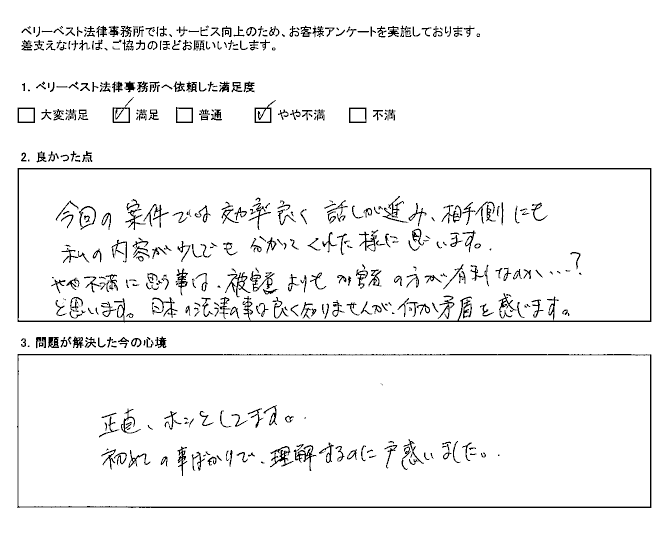 ベリーベスト法律事務所では、サービス向上のため、お客様アンケートを実施しております。
差支えなければ、ご協力のほどお願いいたします。
1. ベリーベスト法律事務所へ依頼した満足度
□ 大変満足 ☑ 満足 □ 普通 ☑ やや不満 □ 不満
2. 良かった点
今回の案件では効率良く話しが進み、相手側にも
私の内容が少しでも分かってくれた様に思います。
やや不満に思う事は、被害者よりも加害者の方が有利なのか…?
と思います。日本の法律の事は良く知りませんが、何か矛盾を感じます。
3. 問題が解決した今の心境
正直、ホッとしてます。
初めての事ばかりで、理解するのに戸惑いました。